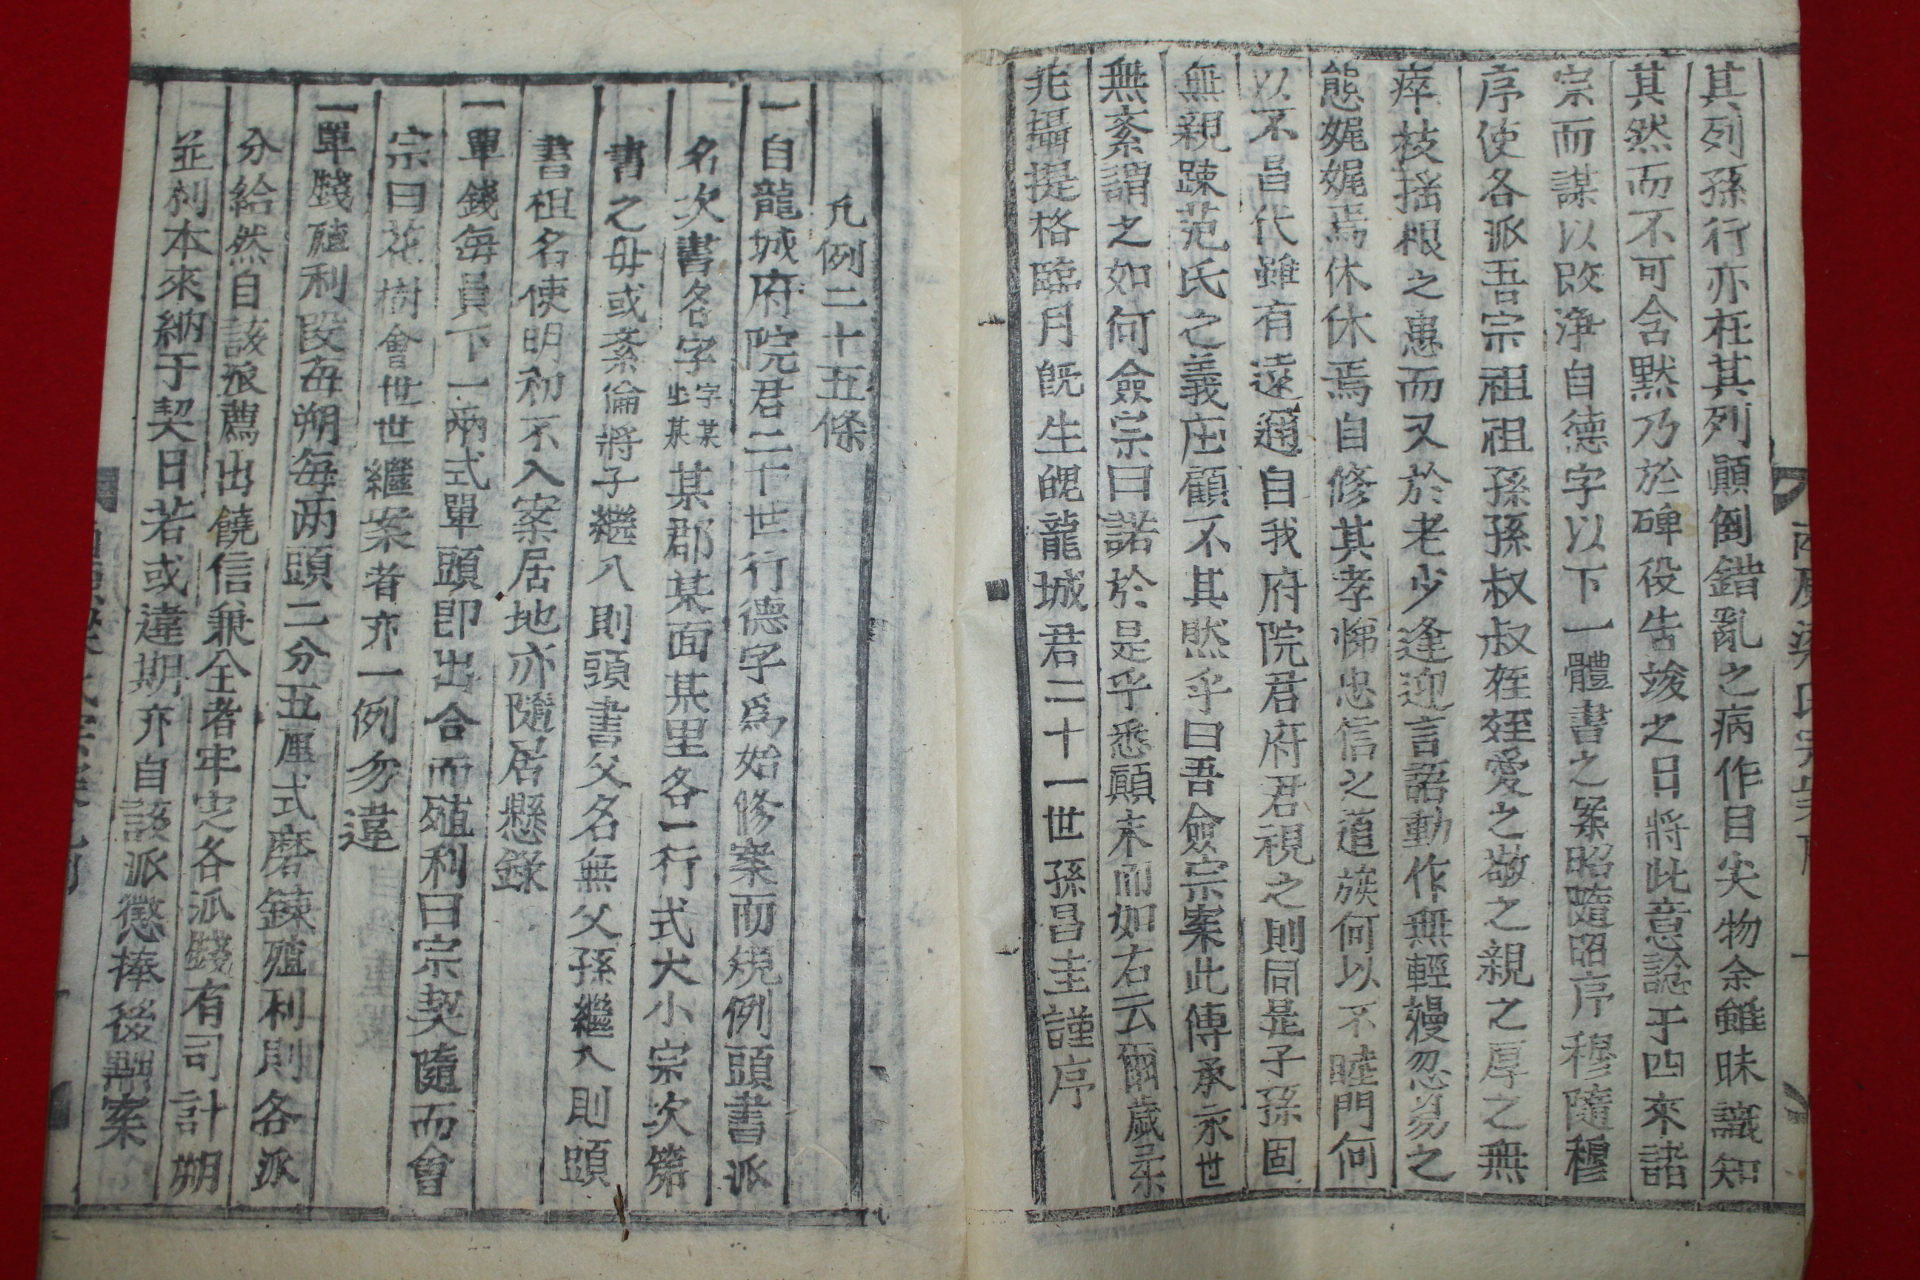 其列孫行亦在其列顚倒錯亂之病作目尖物余雖昧識知
其然而不可含黙乃於碑役告竣之日將此意諗于四來諸
宗而謀以改凈自德字以下一體書之案昭隨昭序穆隨穆
序使各派吾宗祖祖孫孫叔叔姪姪愛之敬之親之厚之無
瘁枝搖根之患而又於老少逢迎言語動作無輕謾忽易之
態娓娓焉休休焉自修其孝悌忠信之道族何以不睦門何
以不昌代雖有遠通自我府院君府君視之則同是子孫固
無親踈范氏之義庄顧不其然乎曰吾僉宗案此傳承永世
無紊謂之如何僉宗曰諾於是乎悉顚末而如右云爾歲柔
兆攝提格臨月旣生魄龍城君二十一世孫昌圭謹序
凡例二十五條
一自龍城府院君二十世行德字爲始修案而規例頭書派
名次書名字字某出某某郡某面某里各一行式大小宗次第
書之毋或紊倫將子繼入則頭書父名無父孫繼入則頭
書祖名使明初不入案居地亦隨居懸錄
一單錢每員下一兩式單頭卽出合而殖利曰宗契隨而會
宗曰花樹會世世繼案者亦一例勿違
一單錢殖利段每朔每兩頭二分五厘式磨鍊殖利則各派
分給然自該派薦出饒信兼全者牢定各派錢有司計朔
並利本來納于契日若或違期亦自該派懲捧後期案